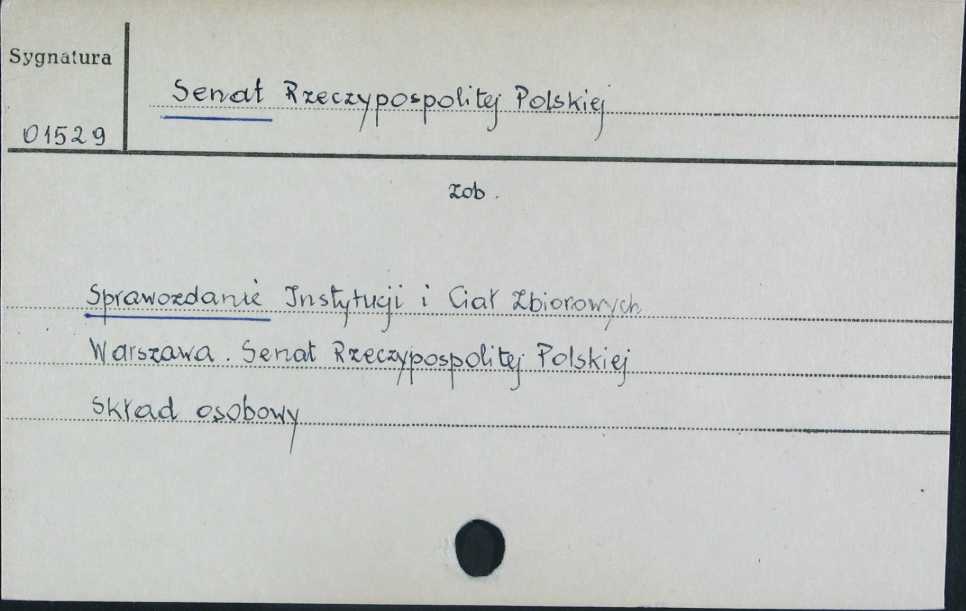 Sygnatura
Senat Rzeczypospolitej Polskiej
01529
zob.
Sprawozdanie Instytucji i Ciał Zbiorowych
Warszawa. Senat Rzeczypospolitej Polskiej
Skład osobowy